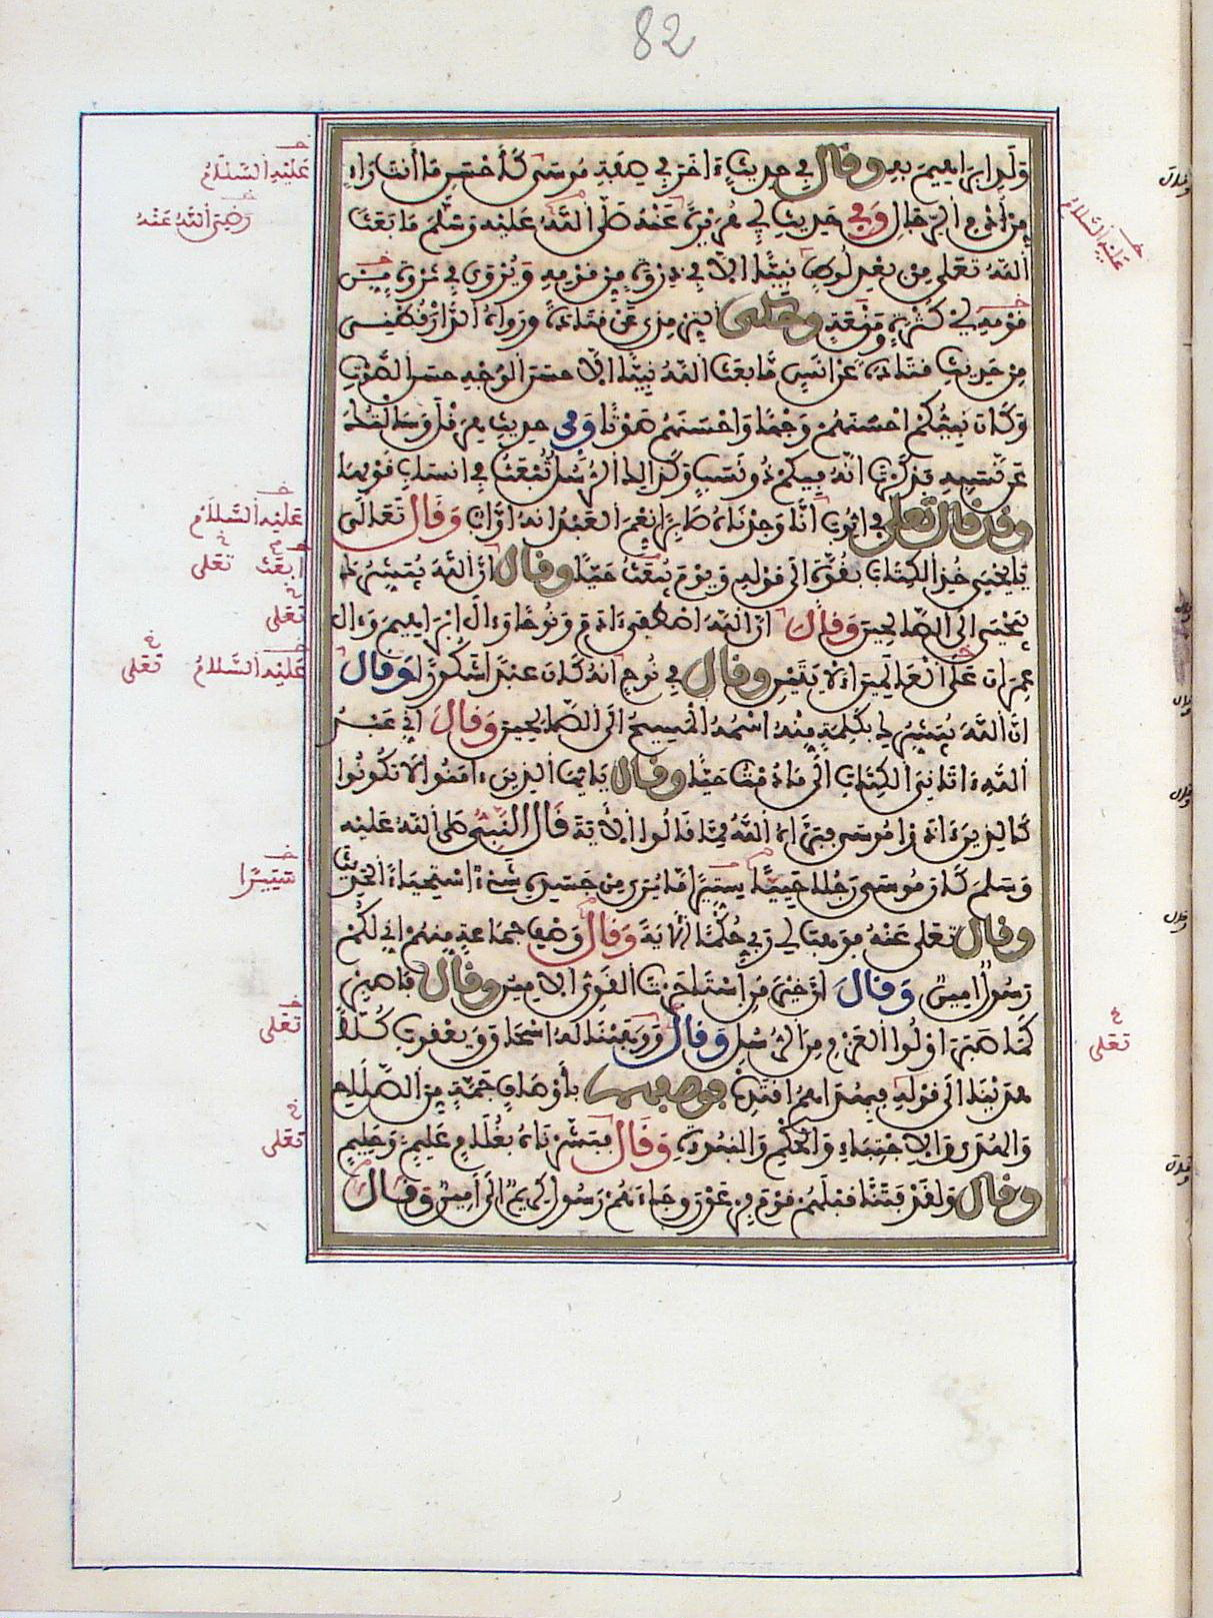 82
ولد ابراهيم به وقال في حديث ءاخر في صفة موسى كأحسن ما أنت راء
من أدم الرجال وفي حديث ابي هريرة عنه صلى الله عليه وسلم ما بعث
الله تعلى من بعد لوط نبيئا الا في ذروة من قومه ويروى في ثروة من
قومه اي كثرة ومنعة وحكى الترمذي عن قتادة ورواه الدارقطني
من حديث قتادة عن انس ما بعث الله نبيئا الا حسن الوجه حسن الصوت
وكان نبيئكم احسنهم وجها واحسنهم صوتا وفي حديث هرقل وسالتك
عن نسبه فذكرت انه فيكم ذو نسب وكذالك الرسل تبعث في انساب قومها
وقد قال تعلى في ايوب انا وجدناه صابرا نعم العبد انه اواب وقال تعالى
يايحيى خذ الكتاب بقوة الى قوله ويوم يبعث حيا وقال ان الله يبشرك
بيحيى الى الصالحين وقال ان الله اصطفى ءادم ونوحا وءال ابراهيم وءال
عمران على العالمين الايتين وقال في نوح انه كان عبدا شكورا وقال
ان الله يبشرك بكلمة منه اسمه المسيح الى الصالحين وقال اني عبد
الله ءاتاني الكتاب الى ما دمت حيا وقال يايها الذين ءامنوا لا تكونوا
كالذين ءاذوا موسى فبرأه الله مما قالوا الآية قال النبي صلى الله عليه
وسلم كان موسى رجلا حييا ستيرا ما يرى من جسده شيء استحياء الحديث
وقال تعلى عنه فوهب لي ربي حكما الآية وقال وصف جماعة منهم اني لكم
رسول امين وقال ان خير من استاجرت القوي الامين وقال فاصبر
كما صبر اولوا العزم من الرسل وقال ووهبنا له اسحاق ويعقوب كلا
هدينا الى قوله فبهداهم اقتده فوصفهم باوصاف جمة من الصلاح
والهدى والاجتباء والحكم والنبوءة وقال فبشرناه بغلام عليم وحليم
وقال ولقد فتنا قبلهم قوم فرعون وجاءهم رسول كريم الى امين وقال
عليه السلام
رضي الله عنه
عليه السلام
ابعث تعلى
تعلى
عليه السلام تعلى
ستيرا
تعلى
تعلى
عليه السلام
تعلى